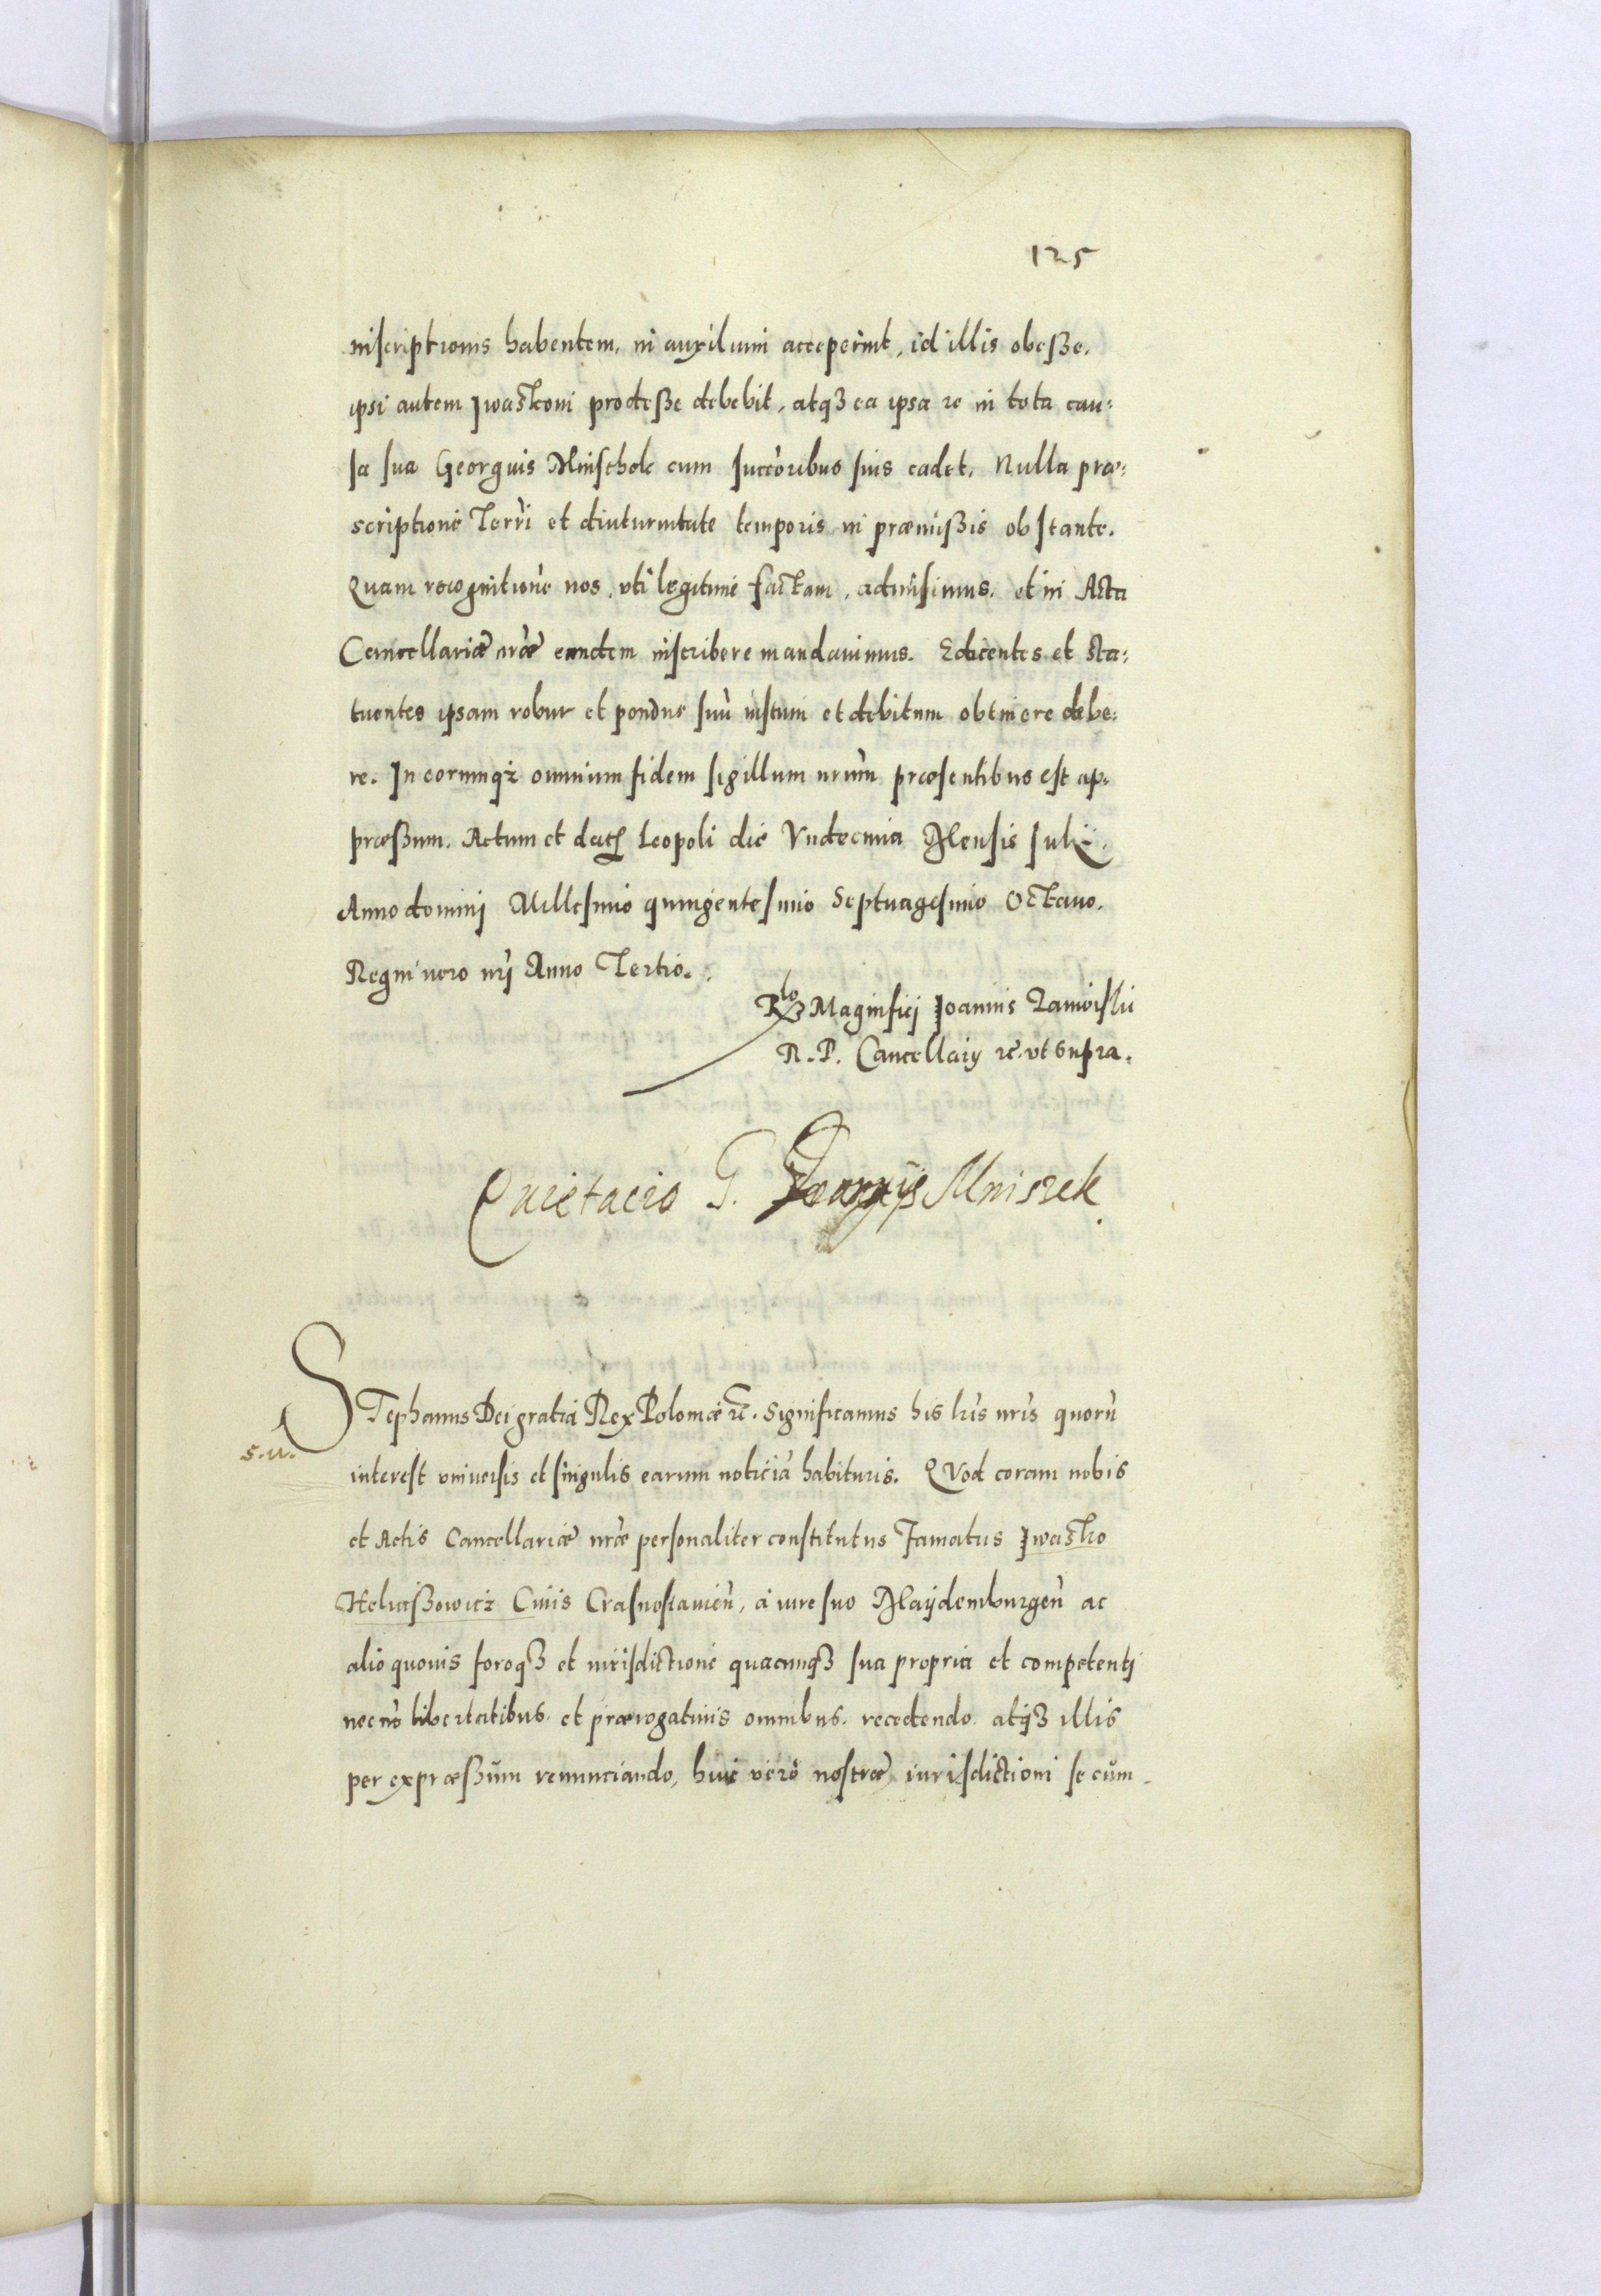 125
inscriptionis habentem, in auxilium acceperint, id illis obesse,
ipsi autem Iwaskoni prodesse debebit, atqȝ ea ipsa re in tota cau:
sa sua Georgius Mnischek cum succōribus suis cadet. Nulla præ:
scriptione Terrī et diuturnitate temporis in præmissis obstante.
Quam recognitionē nos, uti legitime factam, admisimus, et in Acta
Cancellariæ nrāe eandem inscribere mandauimus. Edicentes et sta:
tuentes ipsam robur et pondus suū iustum et debitum obtinere debe:
re. In eorumqȝ omnium fidem sigillum nrūm præsentibus est ap:
præssum. Actum et datȝ Leopoli die Vndecima Mensis Iulij.
Anno dominj Millesimo quingentesimo Septuagesimo Octauo.
Regni vero nrī Anno Tertio.
Rlō Magnificj Joannis Zamoiskii
R. P. Cancellarij rc̄. ut supra.
Quietacio G. Mniszek
Stephanus Dei gratia Rex Poloniæ rc̄. Significamus his lrīs nrīs quorū
S. u.
interest vniuersis et singulis earum noticiā habituris. QVod coram nobis
et Actis Cancellariæ nrāe personaliter constitutus Famatus Iwasko
Heliassowicz Ciuis Crasnostauień, à iure suo Maydemburgeń ac
alio quouis foroqȝ et iurisdictione quacunqȝ sua propria et competentj
necnō libertatibus et prærogatiuis omnibus recedendo atqȝ illis
per expræssum renunciando, huic verò nostræ iurisdictioni se cum